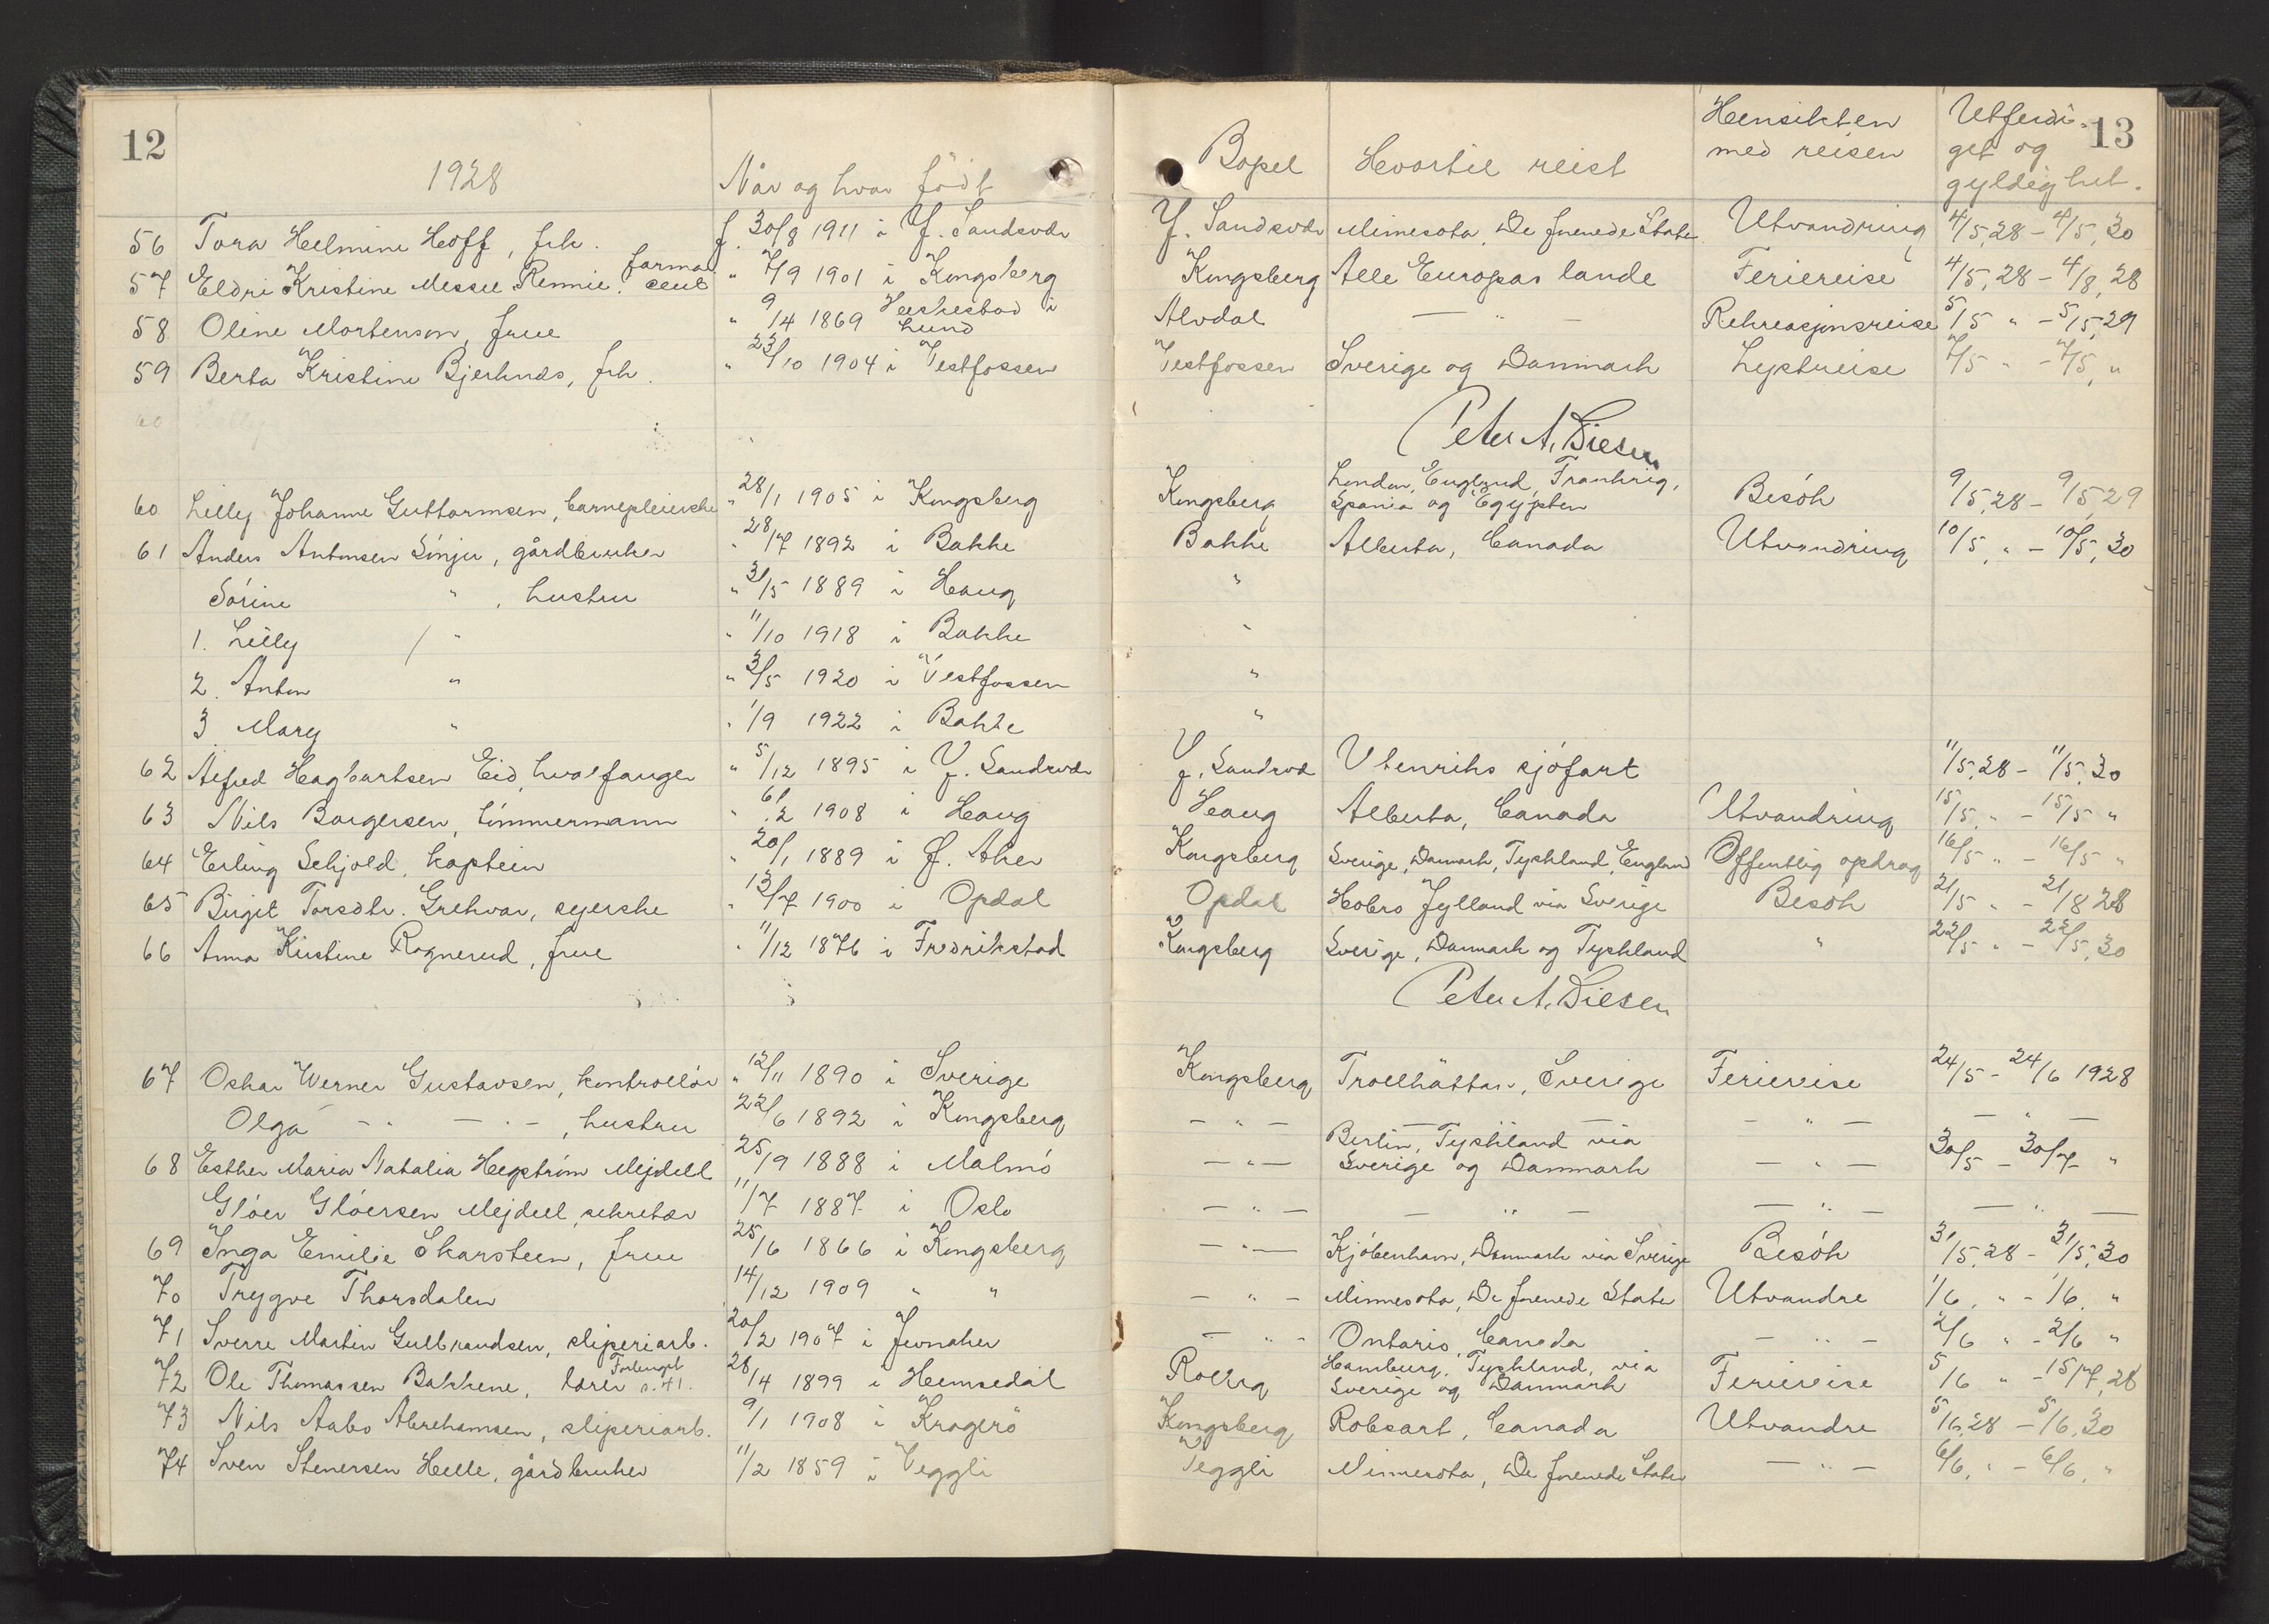 12
1928
Når og hvor født
Bopel
Hvortil reist
Hensikten
med reisen
Utferdi-
get og
gyldighet.
13
56 Tora Helmine Hoff, frk. f. 30/8 1911 i Y. Sandsvær Y. Sandsvær Minnesota, De forenede Stater Utvandring 4/5, 28 - 4/5, 30
57 Eldri Kristine Messel Rennie. farma ceut " 7/9 1901 i Kongsberg Kongsberg Alle Europas lande Feriereise 4/5, 28 - 4/8, 28
58 Oline Mortenson, frue " 9/4 1869 Heskestad i Lund Alvdal — " — Rekreasjonsreise 5/5 " - 5/5, 29
59 Berta Kristine Bjerknes, frk. " 23/10 1904 i Vestfossen Vestfossen Sverige og Danmark Lystreise 7/5 " - 7/5, "
60 Lilly
Peter A. Diesen
60 Lilly Johanne Guttormsen, barnepleierske " 28/1 1905 i Kongsberg Kongsberg London, England, Frankrig, Spania og Egypten Besök 9/5, 28 - 9/5, 29
61 Anders Antonsen Sönju, gårdbruker " 28/7 1892 i Bakke Bakke Alberta, Canada Utvandring 10/5, " - 10/5, 30
Sörine " , hustru " 31/5 1889 i Haug "
1. Lilly " " 11/10 1918 i Bakke "
2. Anton " " 3/5 1920 i Vestfossen "
3. Mary " " 1/9 1922 i Bakke "
62 Alfred Hagbartsen Eid, hvalfanger " 5/12 1895 i Y. Sandsvær Y. Sandsvær Utenriks sjöfart 11/5, 28 - 11/5, 30
63 Nils Borgersen, tömmermann " 6/2 1908 i Haug Haug Alberta, Canada Utvandring 15/5, " - 15/5 "
64 Erling Schjold, kaptein " 20/1 1889 i Ö. Aker Kongsberg Sverige, Danmark, Tyskland, England Offentlig opdrag 16/5 " - 16/5 "
65 Birgit Torsdtr. Grehvar, syerske " 13/7 1900 i Opdal Opdal Hobro Jylland via Sverige Besök 21/5 " - 21/8 28
66 Anna Kirstine Rognerud, frue " 11/12 1876 i Fredrikstad Kongsberg Sverige, Danmark og Tyskland " 22/5 " - 22/5, 30
Peter A. Diesen
67 Oskar Werner Gustavsen, kontrollör " 12/11 1890 i Sverige Kongsberg Trollhättan, Sverige Feriereise 24/5 - 24/6 1928
Olga — " — — " —, hustru 22/6 1892 i Kongsberg — " — — — — " — — " —
68 Esther Maria Natalia Hegström Mejdell 25/9 1888 i Malmö — " — Berlin, Tyskland via Sverige og Danmark — " — 30/5 - 30/7 "
Glöer Glöersen Mejdell, sekretær 11/7 1887 i Oslo — " — — " — — " — — " —
69 Inga Emilie Skarsteen, frue 25/6 1866 i Kongsberg — " — Kjöbenhavn, Danmark via Sverige Besök 31/5, 28 - 31/5, 30
70 Trygve Thorsdalen 14/12 1909 " " — " — Minnesota, De forenede Stater Utvandre 1/6, " - 1/6, "
71 Sverre Martin Gulbrandsen, sliperiarb. 20/2 1907 i Jevnaker — " — Ontario, Canada — " — 2/6 " - 2/6 "
72 Ole Thomassen Bakkene, lærer Forlenget s. 41. 28/4 1899 i Hemsedal Rollag Hamburg, Tyskland, via Sverige og Danmark Feriereise 5/6 " - 15/7, 28
73 Nils Aabo Abrahamsen, sliperiarb. 9/1 1908 i Kragerö Kongsberg Robsart, Canada Utvandre 5/6, 28 - 5/6, 30
74 Sven Stenersen Helle, gårdbruker 11/2 1859 i Veggli Veggli Minnesota, De forenede Stater — " — 6/6, " - 6/6, "